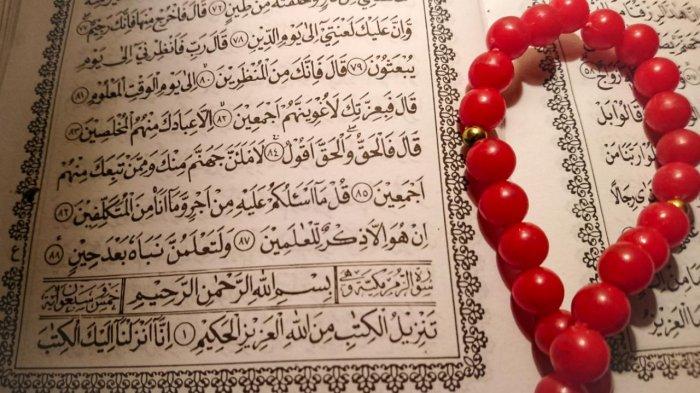 وَخَلَقْتَهُ مِنْ طِينٍ ﴿٧٦﴾ قَالَ فَاخْرُجْ مِنْهَا فَاِنَّكَ رَجِيمٌ ﴿٧٧﴾
وَاِنَّ عَلَيْكَ لَعْنَتِىٓ اِلٰى يَوْمِ الدِّينِ ﴿٧٨﴾ قَالَ رَبِّ فَاَنْظِرْنِىٓ اِلٰى يَوْمِ
يُبْعَثُونَ ﴿٧٩﴾ قَالَ فَاِنَّكَ مِنَ الْمُنْظَرِينَ ﴿٨٠﴾ اِلٰى يَوْمِ الْوَقْتِ الْمَعْلُومِ ﴿٨١﴾
قَالَ فَبِعِزَّتِكَ لَاُغْوِيَنَّهُمْ اَجْمَعِينَ ﴿٨٢﴾ اِلَّا عِبَادَكَ مِنْهُمُ الْمُخْلَصِينَ ﴿٨٣﴾
قَالَ فَالْحَقُّ وَالْحَقَّ اَقُولُ ﴿٨٤﴾ لَاَمْلَئَنَّ جَهَنَّمَ مِنْكَ وَمِمَّنْ تَبِعَكَ مِنْهُمْ
اَجْمَعِينَ ﴿٨٥﴾ قُلْ مَٓا اَسْـَٔلُكُمْ عَلَيْهِ مِنْ اَجْرٍ وَمَٓا اَنَا مِنَ الْمُتَكَلِّفِينَ ﴿٨٦﴾
اِنْ هُوَ اِلَّا ذِكْرٌ لِلْعَالَمِينَ ﴿٨٧﴾ وَلَتَعْلَمُنَّ نَبَاَهُ بَعْدَ حِينٍ ﴿٨٨﴾
سورة الزمر مكية وهى بِسْمِ اللّٰهِ الرَّحْمٰنِ الرَّحِيمِ خمس وسبعون اية
تَنْزِيلُ الْكِتٰبِ مِنَ اللّٰهِ الْعَزِيزِ الْحَكِيمِ ﴿١﴾ اِنَّٓا اَنْزَلْنَٓا اِلَيْكَ الْكِتٰبَ
قَالُوا بَلْ